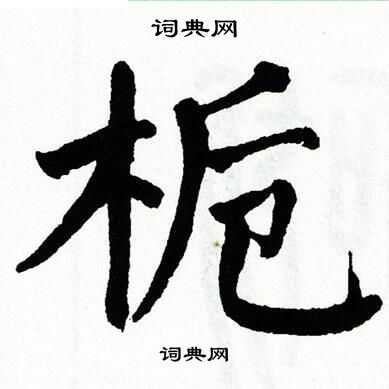 词典网
栀
词典网